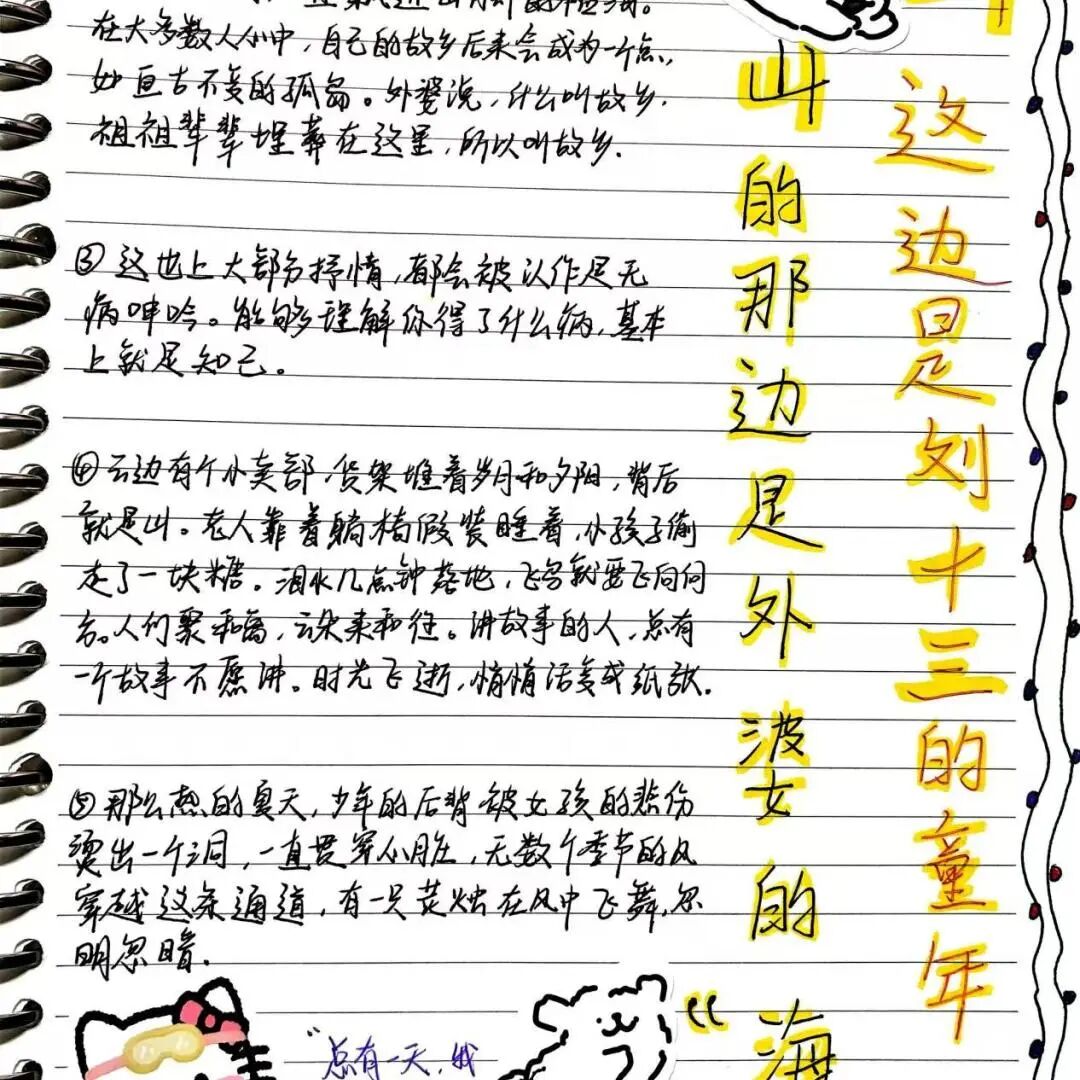 在大多数人心中，自己的故乡后来会成为一个点，
如亘古不变的孤岛。外婆说，什么叫故乡，
祖祖辈辈埋葬在这里，所以叫故乡.
③这世上大部分抒情，都会被认作是无
病呻吟。能够理解你得了什么病，基本
上就是知己。
④云边有个小卖部，货架堆着岁月和夕阳，背后
就是山。老人靠着躺椅假装睡着，小孩子偷
走了一块糖。泪水几点钟落地，飞鸟就要飞向何
方。人们聚和离，云朵来和往。讲故事的人，总有
一个故事不愿讲。时光飞逝，悄悄话变成纸张.
⑤那么热的夏天，少年的后背被女孩的悲伤
烫出一个洞，一直贯穿心脏，无数个季节的风
穿越这条通道，有一只萤烛在风中飞舞，忽
明忽暗.
“总有一天，我
这边是刘十三的童年
山的那边是外婆的
“海